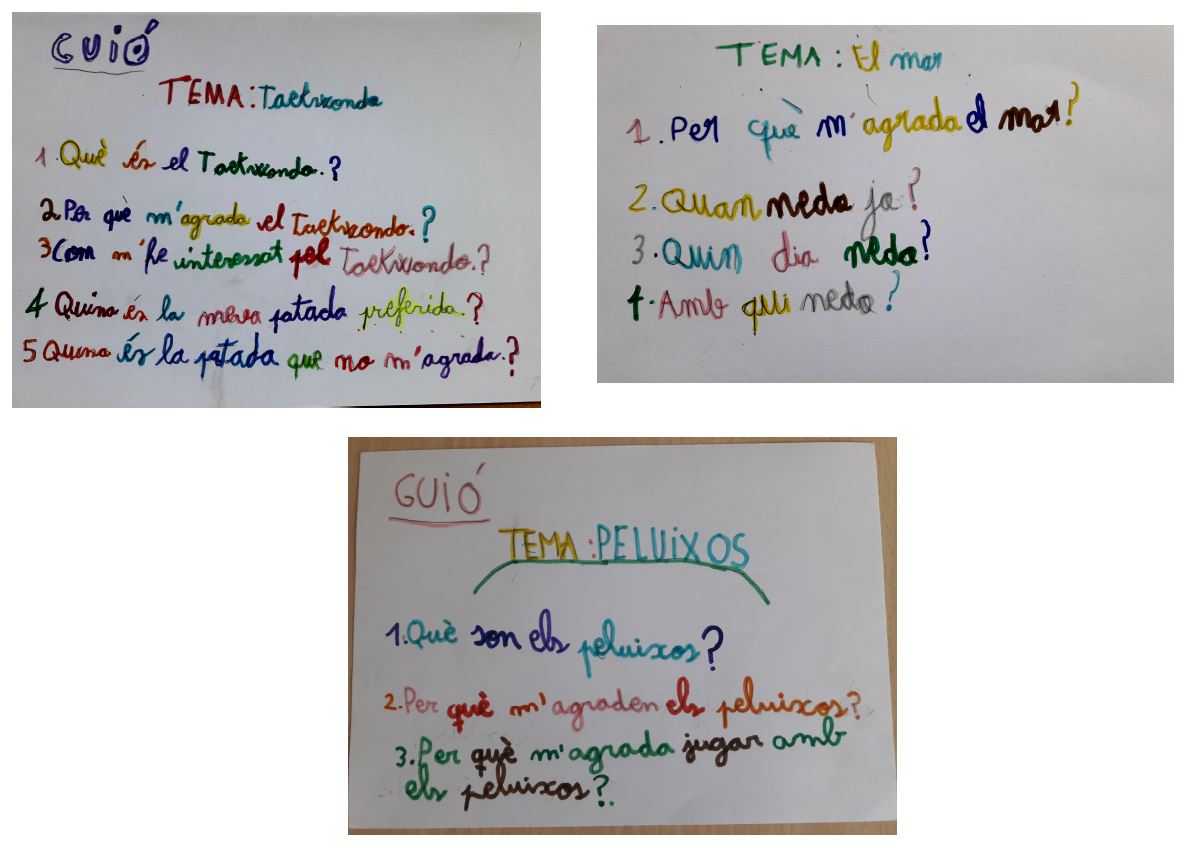 GUIÓ
TEMA: Taekwondo
1. Què és el Taekwondo.?
2 Per què m'agrada el Taekwondo.?
3 Com m'he interessat pel Taekwondo.?
4 Quina és la meva patada preferida.?
5 Quina és la patada que no m'agrada.?
TEMA: El mar
1. Per què m'agrada el mar?
2. Quan nedo jo?
3. Quin dia nedo?
4. Amb qui nedo?
GUIÓ
TEMA: PELUIXOS
1. Què son els peluixos?
2. Per què m'agraden els peluixos?
3. Per què m'agrada jugar amb
els peluixos?.